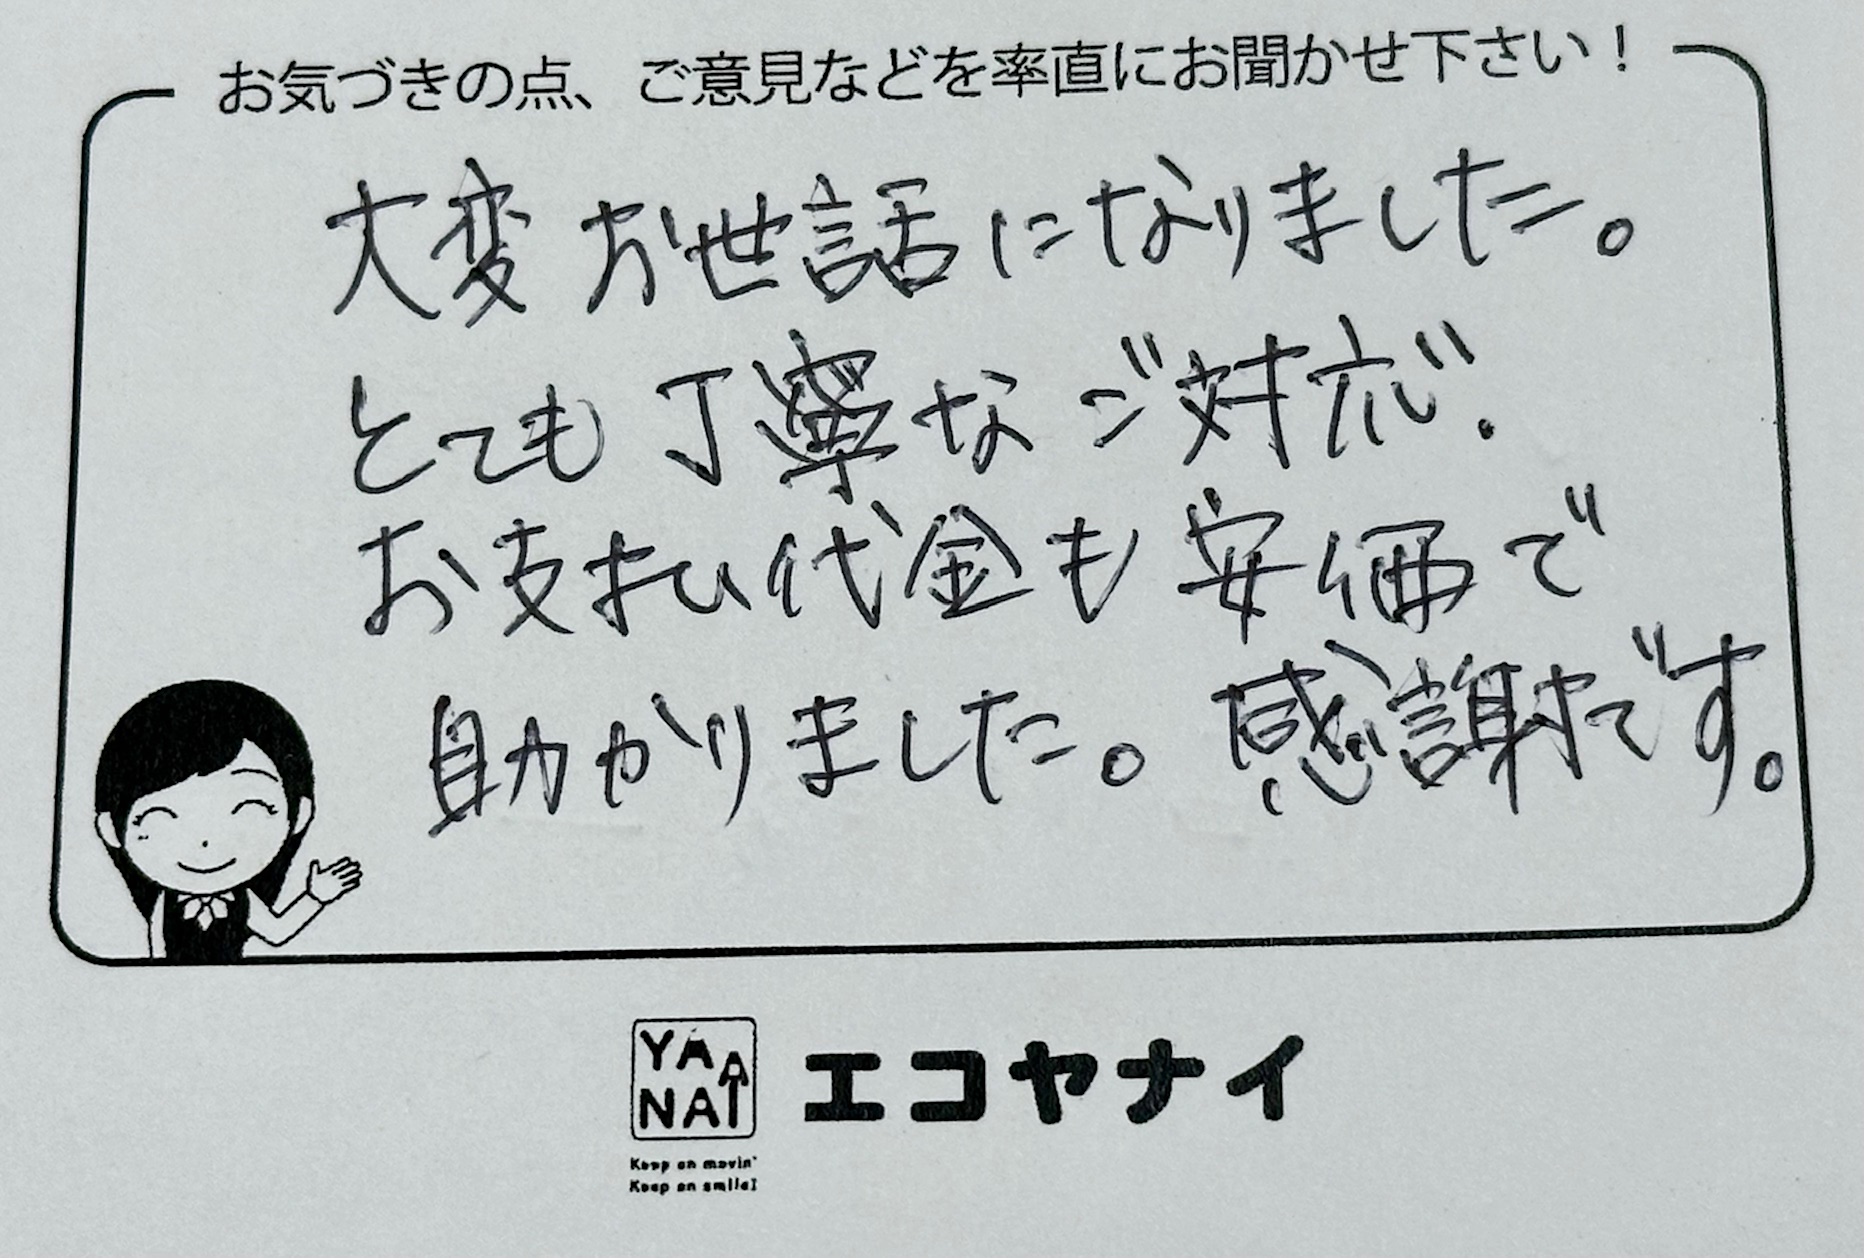 お気づきの点、ご意見などを率直にお聞かせ下さい！
大変お世話になりました。
とても丁寧なご対応、
お支払代金も安価で
助かりました。感謝です。
YANAI
エコヤナイ
Keep on movin'
Keep on smile!